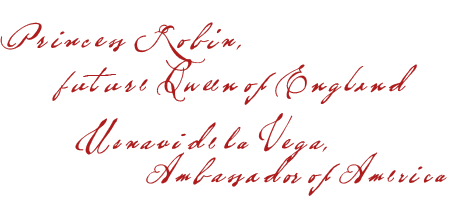 Princess Robin,
future Queen of England
Usnavi de la Vega,
Ambassador of America